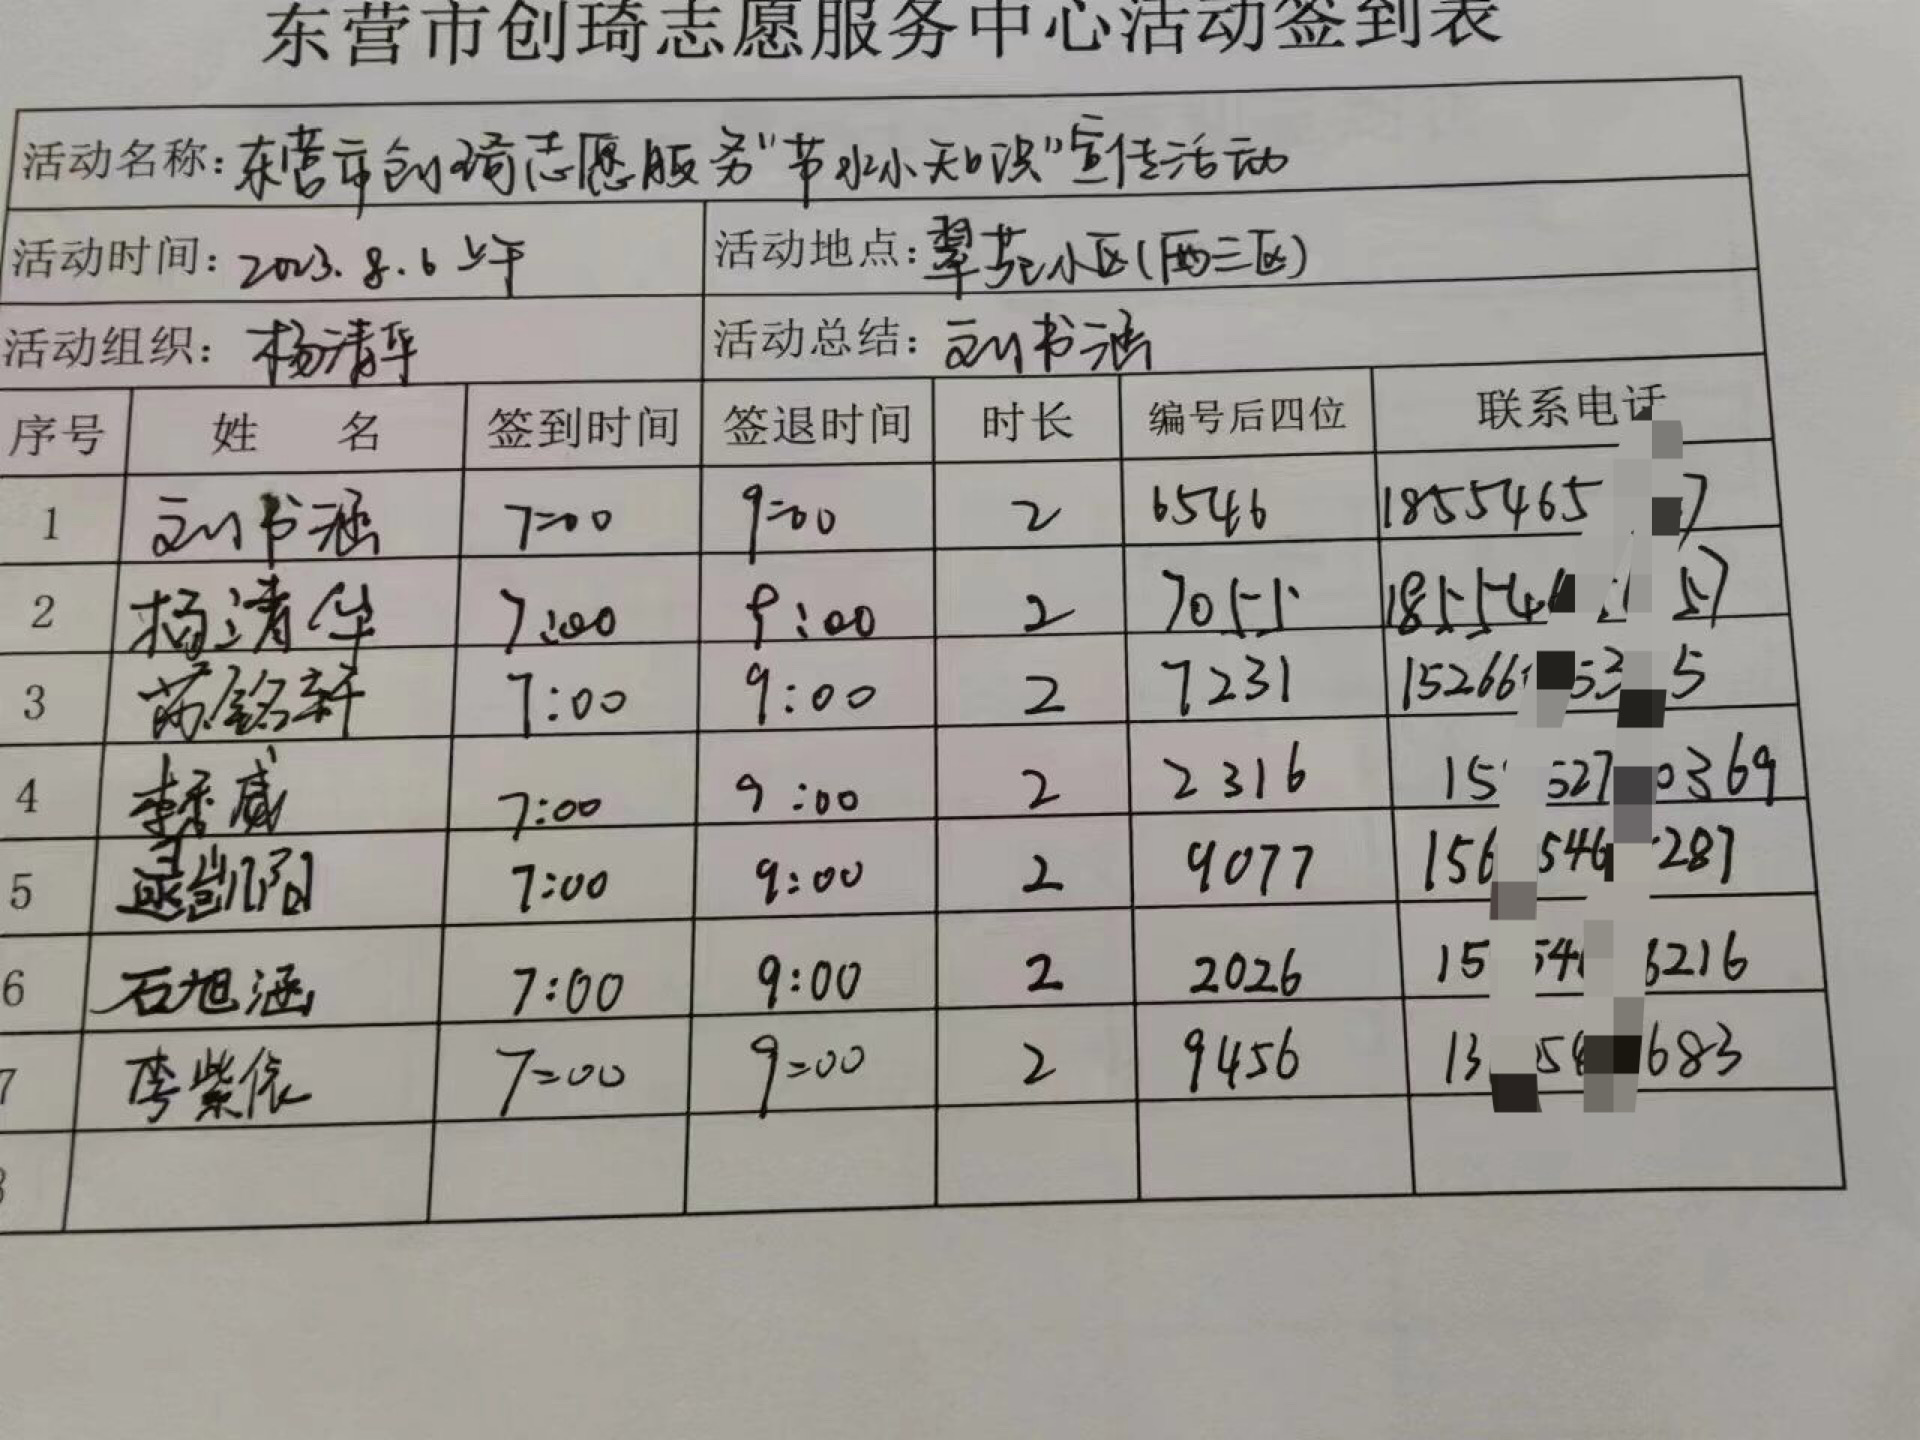 东营市创琦志愿服务中心活动签到表
活动名称：东营市创琦志愿服务"节水小知识"宣传活动
活动时间：2023.8.6 上午 活动地点：翠苑小区(西三区)
活动组织：杨清华 活动总结：刘书涵
序号 姓 名 签到时间 签退时间 时长 编号后四位 联系电话
1 刘书涵 7:00 9:00 2 6546 1855465 7
2 杨清华 7:00 9:00 2 7055 18554 57
3 苏铭轩 7:00 9:00 2 7231 15266 53 5
4 李秀威 7:00 9:00 2 2316 15 527 0369
5 7:00 9:00 2 9077 156 546 287
6 石旭涵 7:00 9:00 2 2026 15 54 6216
7 李紫依 7:00 9:00 2 9456 13 5 683